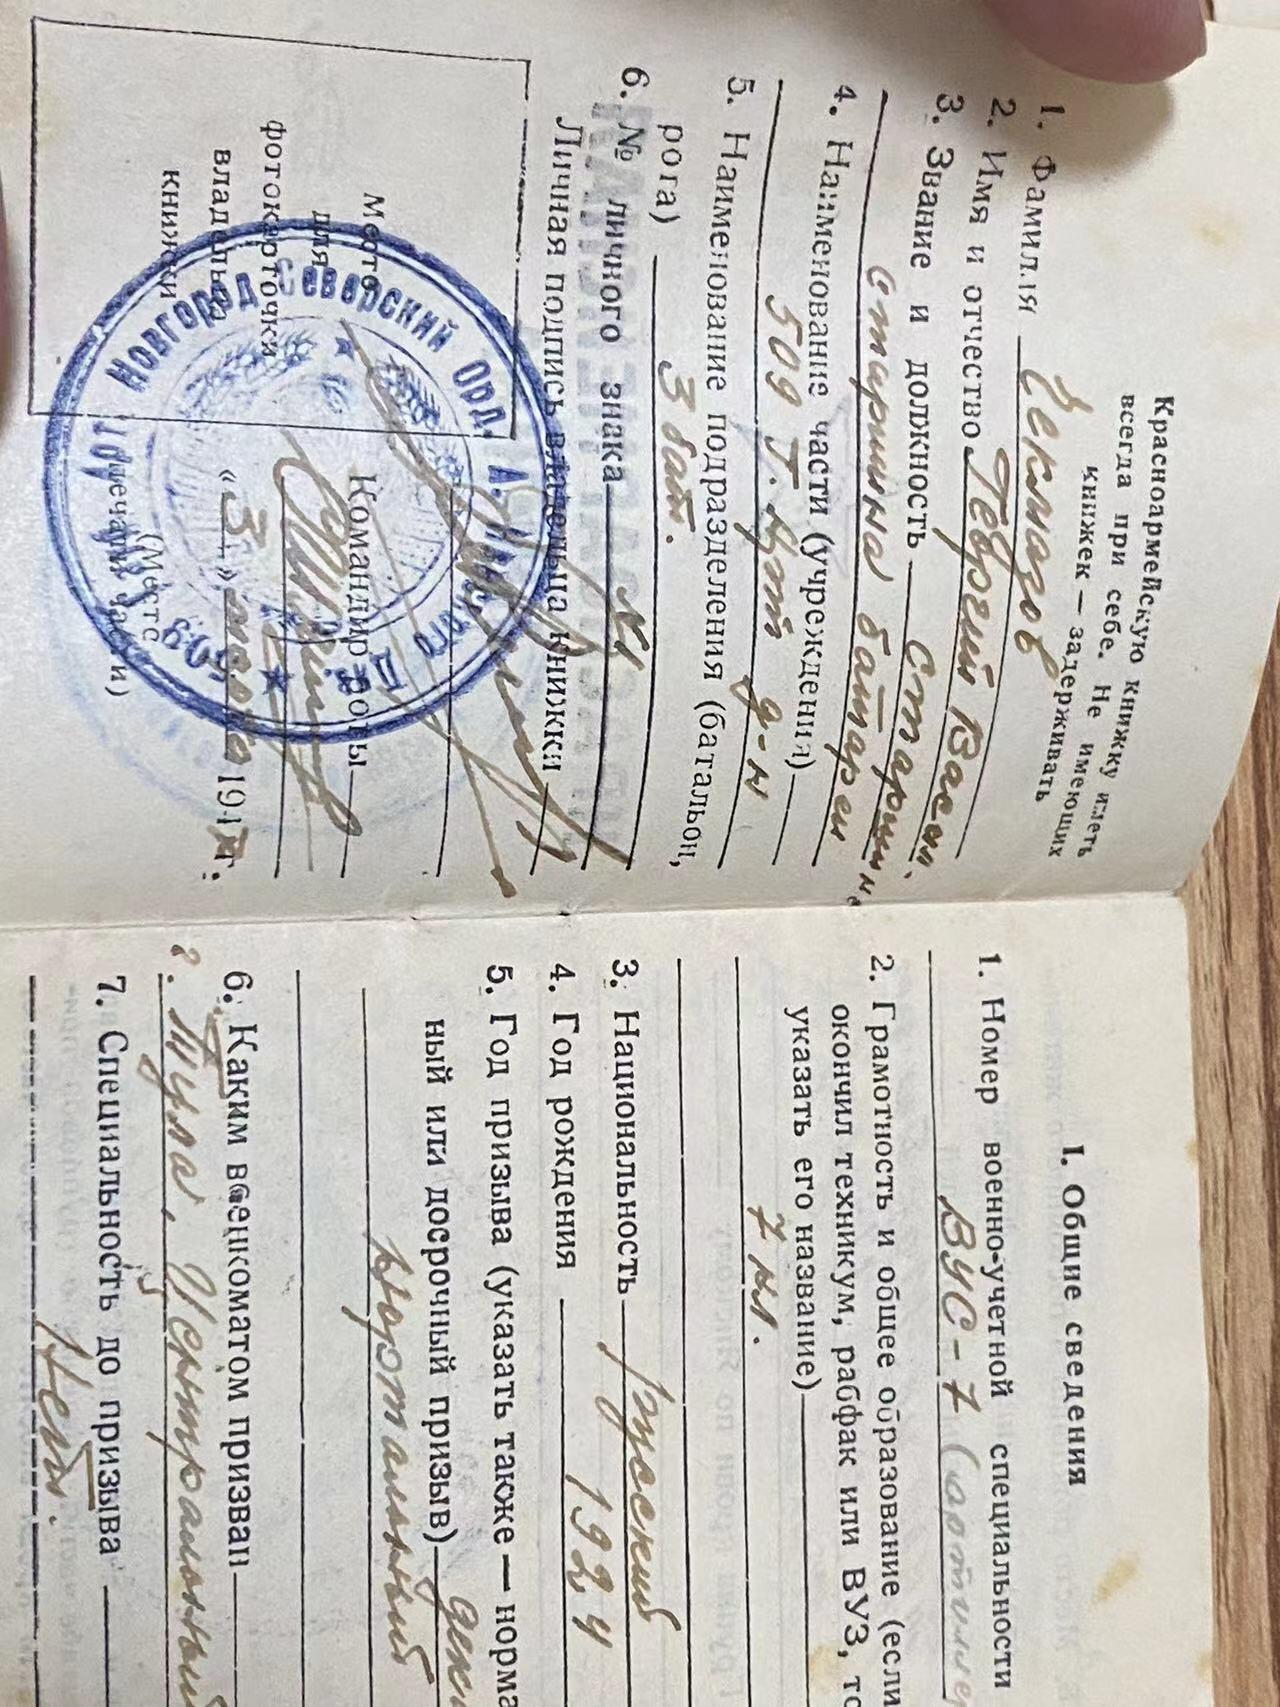 Красноармейскую книжку иметь
всегда при себе. Не имеющих
книжек — задерживать
1. Фамилия Чекмазов
2. Имя и отчество Георгий Васил.
3. Звание и должность Старшина
старшина батареи
4. Наименование части (учреждения)
509 г. Мот д-н
5. Наименование подразделения (батальон,
рота) 3 бат.
6. № личного знака
Личная подпись владельца книжки
Место
для
фотокарточки
владельца
книжки
Командир роты
«3» 194 г.
(Место
печати части)
Новгород Северский Орд. А. Невского
I. Общие сведения
1. Номер военно-учетной специальности
ВУС-7
2. Грамотность и общее образование (если
окончил техникум, рабфак или ВУЗ, то
указать его название)
7 кл.
3. Национальность русский
4. Год рождения 1924
5. Год призыва (указать также — норма
ный или досрочный призыв)
нормальный
6. Каким военкоматом призван
г. Тула, Центральный
7. Специальность до призыва
Нет.